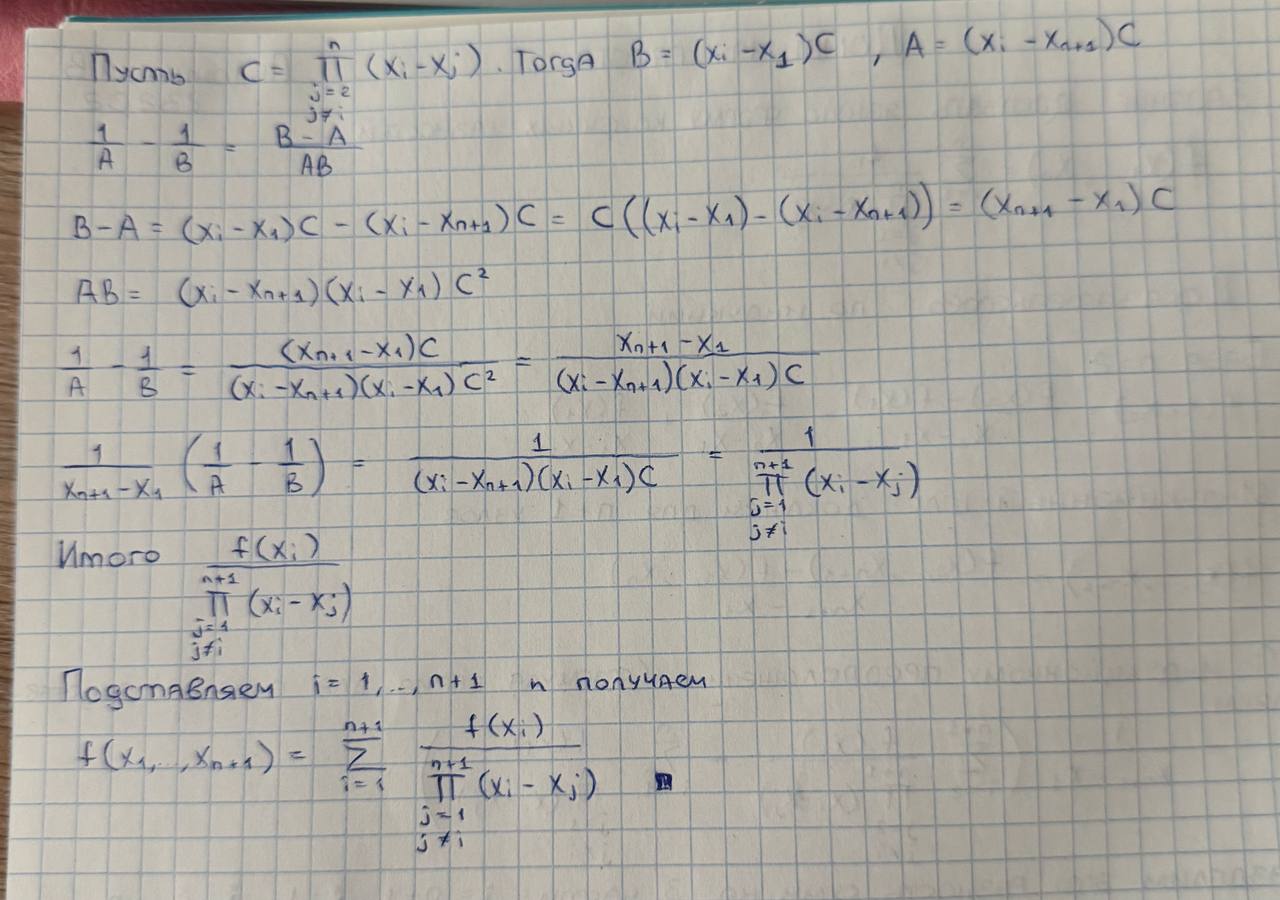 Пусть C = ∏_{j=2, j≠i}^{n} (x_i − x_j). Тогда B = (x_i − x_1)C , A = (x_i − x_{n+1})C
1/A − 1/B = (B − A)/(AB)
B − A = (x_i − x_1)C − (x_i − x_{n+1})C = C((x_i − x_1) − (x_i − x_{n+1})) = (x_{n+1} − x_1)C
AB = (x_i − x_{n+1})(x_i − x_1)C²
1/A − 1/B = ((x_{n+1} − x_1)C)/((x_i − x_{n+1})(x_i − x_1)C²) = (x_{n+1} − x_1)/((x_i − x_{n+1})(x_i − x_1)C)
1/(x_{n+1} − x_1) (1/A − 1/B) = 1/((x_i − x_{n+1})(x_i − x_1)C) = 1/(∏_{j=1, j≠i}^{n+1} (x_i − x_j))
Итого f(x_i)/(∏_{j=1, j≠i}^{n+1} (x_i − x_j))
Подставляем i = 1,..,n+1 и получаем
f(x_1,..,x_{n+1}) = ∑_{i=1}^{n+1} f(x_i)/(∏_{j=1, j≠i}^{n+1} (x_i − x_j)) ■